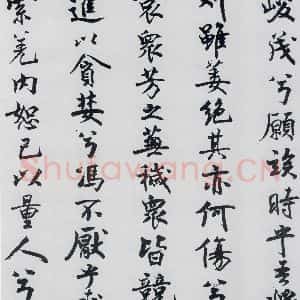 峻茂兮願竢時乎吾將
刈雖萎絕其亦何傷兮
哀眾芳之蕪穢眾皆競
進以貪婪兮馮不厭乎
索羌內恕己以量人兮
Shufawang.CN